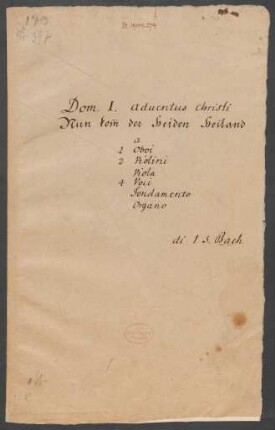 Dom. I. Adventus Christi
Nun kom̄ der Heiden Heiland
a
2 Oboi
2 Violini
Viola
4 Voci
Fondamento
Organo
di I. S. Bach